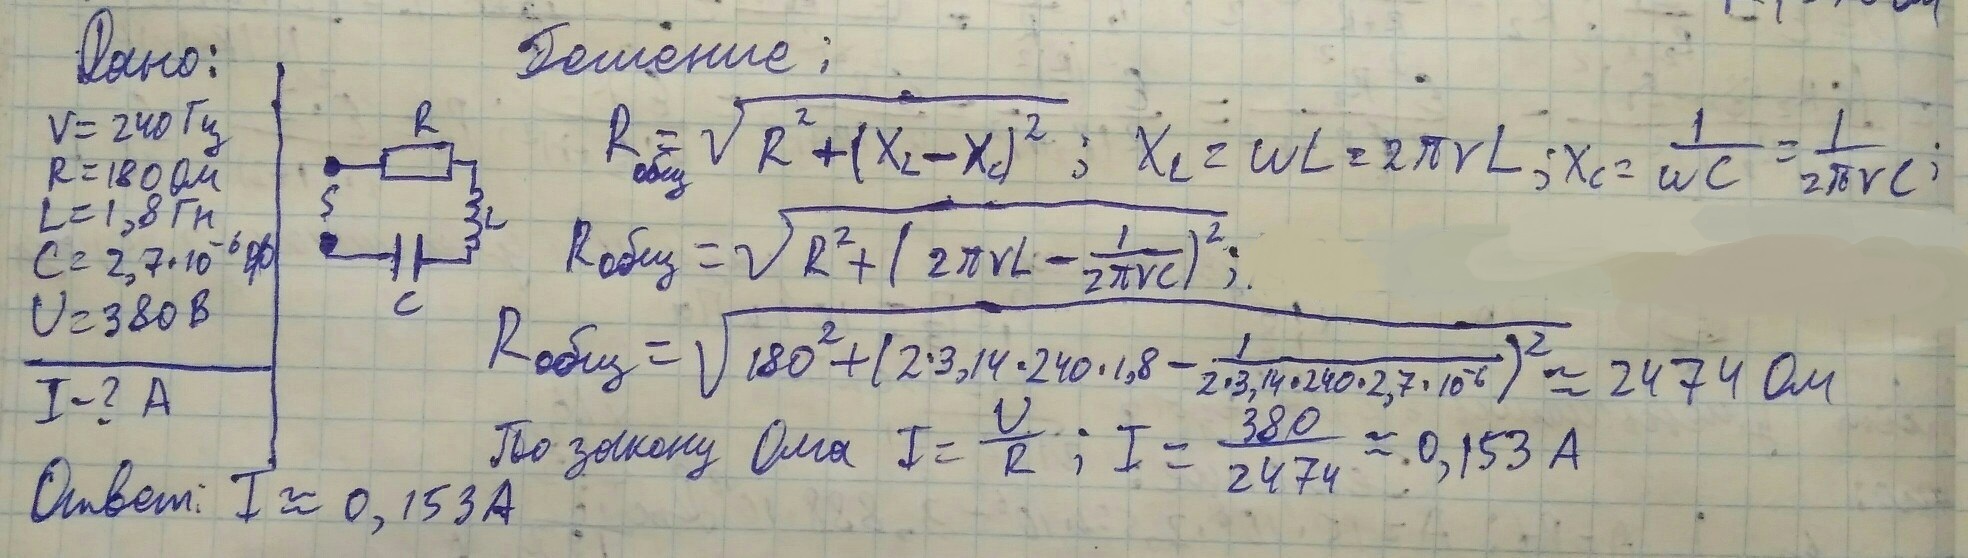 Дано:
ν=240 Гц
R=180 Ом
L=1,8 Гн
C=2,7·10⁻⁶ Ф
U=380 В
I-? A
Ответ: I≈0,153A
R
L
C
Решение:
Rобщ=√(R²+(X_L−X_C)²); X_L=ωL=2πνL; X_C=1/(ωC)=1/(2πνC);
Rобщ=√(R²+(2πνL−1/(2πνC))²);
Rобщ=√(180²+(2·3,14·240·1,8−1/(2·3,14·240·2,7·10⁻⁶))²)≈2474 Ом
По закону Ома I=U/R; I=380/2474≈0,153 A